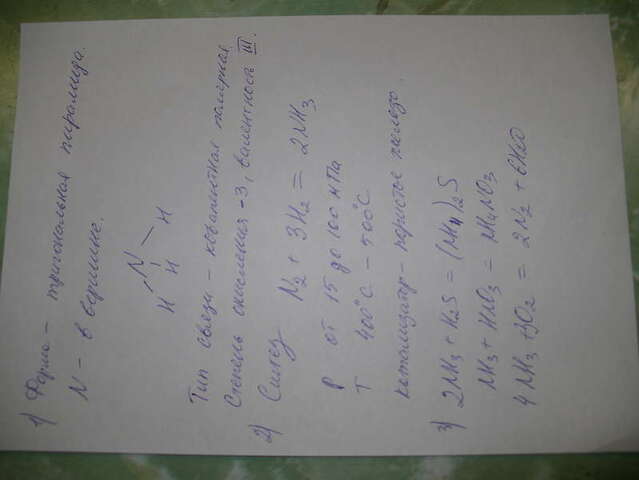 1) Форма – тригональная пирамида.
N – в вершине.
N
H H H
Тип связи – ковалентная полярная
Степень окисления -3, валентность III.
2) Синтез N2 + 3H2 = 2NH3
P от 15 до 100 мПа
T 400°C – 500°C
катализатор – пористое железо.
3) 2NH3 + H2S = (NH4)2S
NH3 + HNO3 = NH4NO3
4NH3 + 3O2 = 2N2 + 6H2O